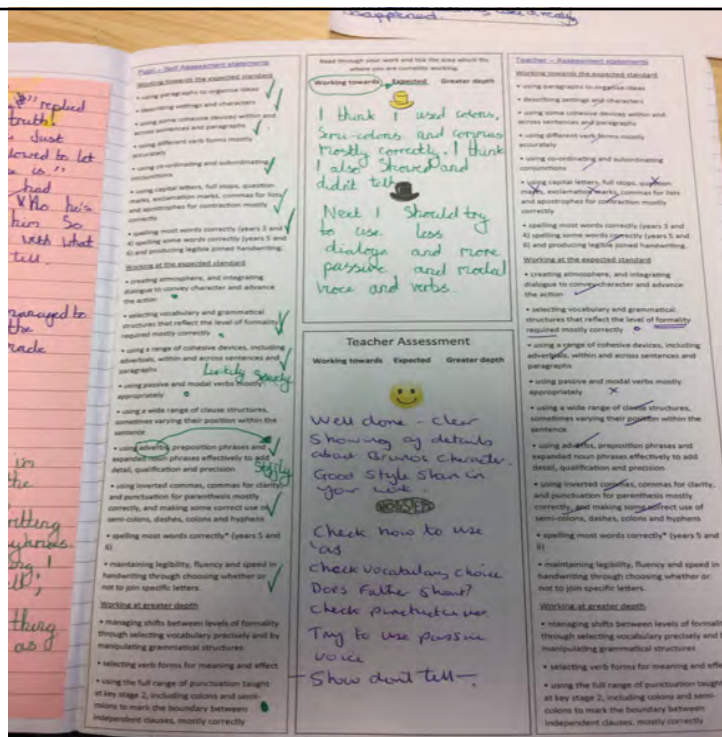 disappeared.
replied
truth.
Just
lowed to let
is "
had
who his
him So
with what
tell.
managed to
the
in
the
thing
as
Pupil – Self Assessment statements
Working towards the expected standard
• using paragraphs to organise ideas
• describing settings and characters
• using some cohesive devices within and
across sentences and paragraphs
• using different verb forms mostly
accurately
• using co-ordinating and subordinating
conjunctions
• using capital letters, full stops, question
marks, exclamation marks, commas for lists
and apostrophes for contraction mostly
correctly
• spelling most words correctly (years 3 and
4) spelling some words correctly (years 5 and
6) and producing legible joined handwriting.
Working at the expected standard
• creating atmosphere, and integrating
dialogue to convey character and advance
the action
• selecting vocabulary and grammatical
structures that reflect the level of formality
required mostly correctly
• using a range of cohesive devices, including
adverbials, within and across sentences and
paragraphs
• using passive and modal verbs mostly
appropriately
• using a wide range of clause structures,
sometimes varying their position within the
sentence
• using adverbs, preposition phrases and
expanded noun phrases effectively to add
detail, qualification and precision
• using inverted commas, commas for clarity,
and punctuation for parenthesis mostly
correctly, and making some correct use of
semi-colons, dashes, colons and hyphens
• spelling most words correctly* (years 5 and
6)
• maintaining legibility, fluency and speed in
handwriting through choosing whether or
not to join specific letters.
Working at greater depth
• managing shifts between levels of formality
through selecting vocabulary precisely and by
manipulating grammatical structures
• selecting verb forms for meaning and effect
• using the full range of punctuation taught
at key stage 2, including colons and semi-
colons to mark the boundary between
independent clauses, mostly correctly
Read through your work and tick the area which fits
where you are currently working.
Working towards Expected Greater depth
I think I used colons,
Semi-colons and commas
mostly correctly. I think
I also Showed and
didn't tell
Next I Should try
to use less
dialoge and more
passive and modal
voice and verbs.
Teacher Assessment
Working towards Expected Greater depth
Well done - clear
Showing of details
about Bruno's Character.
Good Style Shown in
your work.
Check how to use
'as
Check vocabulary choice
Does Father Shout?
Check punctuation
Try to use passive
voice
- Show don't tell -
Teacher – Assessment statements
Working towards the expected standard
• using paragraphs to organise ideas
• describing settings and characters
• using some cohesive devices within and
across sentences and paragraphs
• using different verb forms mostly
accurately
• using co-ordinating and subordinating
conjunctions
• using capital letters, full stops, question
marks, exclamation marks, commas for lists
and apostrophes for contraction mostly
correctly
• spelling most words correctly (years 3 and
4) spelling some words correctly (years 5 and
6) and producing legible joined handwriting.
Working at the expected standard
• creating atmosphere, and integrating
dialogue to convey character and advance
the action
• selecting vocabulary and grammatical
structures that reflect the level of formality
required mostly correctly
• using a range of cohesive devices, including
adverbials, within and across sentences and
paragraphs
• using passive and modal verbs mostly
appropriately
• using a wide range of clause structures,
sometimes varying their position within the
sentence
• using adverbs, preposition phrases and
expanded noun phrases effectively to add
detail, qualification and precision
• using inverted commas, commas for clarity,
and punctuation for parenthesis mostly
correctly, and making some correct use of
semi-colons, dashes, colons and hyphens
• spelling most words correctly* (years 5 and
6)
• maintaining legibility, fluency and speed in
handwriting through choosing whether or
not to join specific letters.
Working at greater depth
• managing shifts between levels of formality
through selecting vocabulary precisely and
manipulating grammatical structures
• selecting verb forms for meaning and effect
• using the full range of punctuation taught
at key stage 2, including colons and semi-
colons to mark the boundary between
independent clauses, mostly correctly